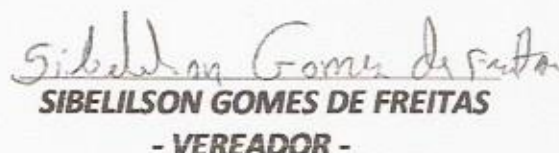 Sibelilson Gomes de Freitas
SIBELILSON GOMES DE FREITAS
- VEREADOR -